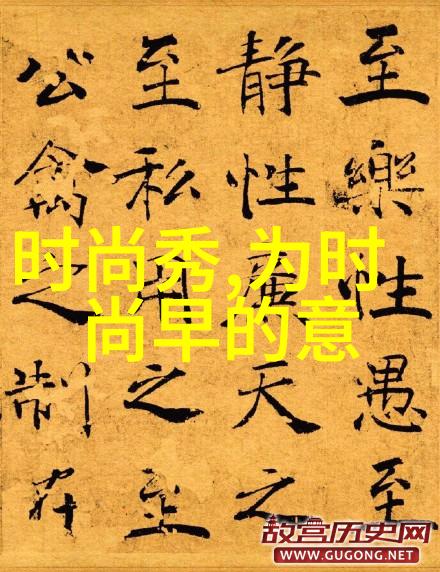 至樂性愚至
静性廉天之
至私用之至
公禽之制在
时尚秀,为时
尚早的意
故宫历史网
WWW.GUGONG.NET